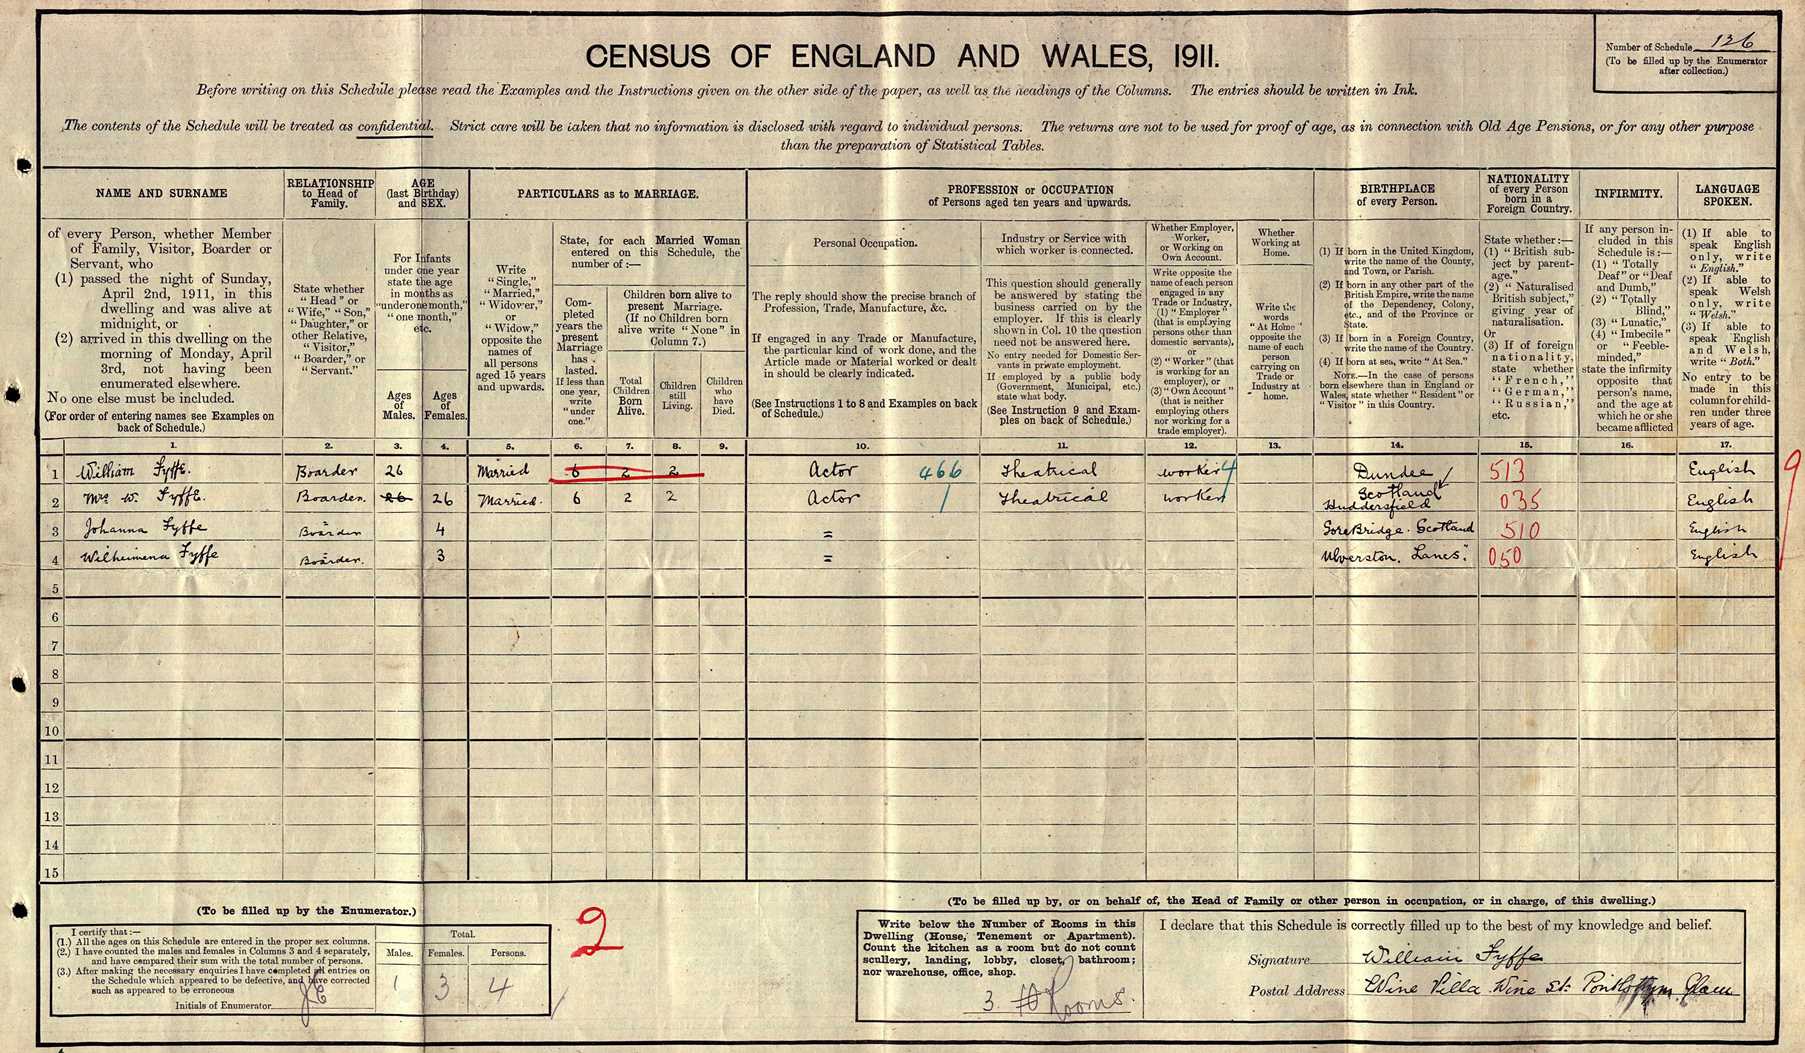 CENSUS OF ENGLAND AND WALES, 1911.
Number of Schedule 136
(To be filled up by the Enumerator
after collection.)
Before writing on this Schedule please read the Examples and the Instructions given on the other side of the paper, as well as the headings of the Columns. The entries should be written in Ink.
The contents of the Schedule will be treated as confidential. Strict care will be taken that no information is disclosed with regard to individual persons. The returns are not to be used for proof of age, as in connection with Old Age Pensions, or for any other purpose
than the preparation of Statistical Tables.
NAME AND SURNAME
of every Person, whether Member
of Family, Visitor, Boarder or
Servant, who
(1) passed the night of Sunday,
April 2nd, 1911, in this
dwelling and was alive at
midnight, or
(2) arrived in this dwelling on the
morning of Monday, April
3rd, not having been
enumerated elsewhere.
No one else must be included.
(For order of entering names see Examples on
back of Schedule.)
RELATIONSHIP
to Head of
Family.
State whether
"Head" or
"Wife," "Son,"
"Daughter," or
other Relative,
"Visitor,"
"Boarder," or
"Servant."
AGE
(last Birthday)
and SEX.
For Infants
under one year
state the age
in months as
"under one month,"
"one month,"
etc.
Ages
of
Males.
Ages
of
Females.
PARTICULARS as to MARRIAGE.
Write
"Single,"
"Married,"
"Widower,"
or
"Widow,"
opposite the
names of
all persons
aged 15 years
and upwards.
State, for each Married Woman
entered on this Schedule, the
number of :—
Com-
pleted
years the
present
Marriage
has
lasted.
If less than
one year,
write
"under
one."
Children born alive to
present Marriage.
(If no Children born
alive write "None" in
Column 7.)
Total
Children
Born
Alive.
Children
still
Living.
Children
who
have
Died.
PROFESSION or OCCUPATION
of Persons aged ten years and upwards.
Personal Occupation.
The reply should show the precise branch of
Profession, Trade, Manufacture, &c.
If engaged in any Trade or Manufacture,
the particular kind of work done, and the
Article made or Material worked or dealt
in should be clearly indicated.
(See Instructions 1 to 8 and Examples on back
of Schedule.)
Industry or Service with
which worker is connected.
This question should generally
be answered by stating the
business carried on by the
employer. If this is clearly
shown in Col. 10 the question
need not be answered here.
No entry needed for Domestic Ser-
vants in private employment.
If employed by a public body
(Government, Municipal, etc.)
state what body.
(See Instruction 9 and Exam-
ples on back of Schedule.)
Whether Employer,
Worker,
or Working on
Own Account.
Write opposite the
name of each person
engaged in any
Trade or Industry,
(1) "Employer"
(that is employing
persons other than
domestic servants),
or
(2) "Worker" (that
is working for an
employer), or
(3) "Own Account"
(that is neither
employing others
nor working for a
trade employer).
Whether
Working at
Home.
Write the
words
"At Home"
opposite the
name of each
person
carrying on
Trade or
Industry at
home.
BIRTHPLACE
of every Person.
(1) If born in the United Kingdom,
write the name of the County,
and Town, or Parish.
(2) If born in any other part of the
British Empire, write the name
of the Dependency, Colony,
etc., and of the Province or
State.
(3) If born in a Foreign Country,
write the name of the Country.
(4) If born at sea, write "At Sea."
NOTE.—In the case of persons
born elsewhere than in England or
Wales, state whether "Resident" or
"Visitor" in this Country.
NATIONALITY
of every Person
born in a
Foreign Country.
State whether :—
(1) "British sub-
ject by parent-
age."
(2) "Naturalised
British subject,"
giving year of
naturalisation.
Or
(3) If of foreign
nationality,
state whether
"French,"
"German,"
"Russian,"
etc.
INFIRMITY.
If any person in-
cluded in this
Schedule is :—
(1) "Totally
Deaf" or "Deaf
and Dumb,"
(2) "Totally
Blind,"
(3) "Lunatic,"
(4) "Imbecile"
or "Feeble-
minded,"
state the infirmity
opposite that
person's name,
and the age at
which he or she
became afflicted
LANGUAGE
SPOKEN.
(1) If able to
speak English
only, write
"English."
(2) If able to
speak Welsh
only, write
"Welsh."
(3) If able to
speak English
and Welsh,
write "Both."
No entry to be
made in this
column for child-
ren under three
years of age.
1. 2. 3. 4. 5. 6. 7. 8. 9. 10. 11. 12. 13. 14. 15. 16. 17.
1 William Fyffe. Boarder 26 Married 6 2 2 Actor 466 Theatrical worker 4 Dundee Scotland 513 English
2 Mrs W. Fyffe. Boarder. 26 26 Married. 6 2 2 Actor 1 Theatrical worker Huddersfield 035 English
3 Johanna Fyffe Boarder 4 = GoreBridge. Scotland 510 English
4 Wilheimena Fyffe Boarder. 3 = Ulverston. Lancs. 050 English
9
5
6
7
8
9
10
11
12
13
14
15
(To be filled up by the Enumerator.)
I certify that :—
(1.) All the ages on this Schedule are entered in the proper sex columns.
(2.) I have counted the males and females in Columns 3 and 4 separately,
and have compared their sum with the total number of persons.
(3.) After making the necessary enquiries I have completed all entries on
the Schedule which appeared to be defective, and have corrected
such as appeared to be erroneous
Initials of Enumerator JE
Total.
Males. Females. Persons.
1 3 4
2
(To be filled up by, or on behalf of, the Head of Family or other person in occupation, or in charge, of this dwelling.)
Write below the Number of Rooms in this
Dwelling (House, Tenement or Apartment).
Count the kitchen as a room but do not count
scullery, landing, lobby, closet, bathroom;
nor warehouse, office, shop.
3. Rooms.
I declare that this Schedule is correctly filled up to the best of my knowledge and belief.
Signature William Fyffe
Postal Address Wine Villa Wine St. Pontlottym Glam